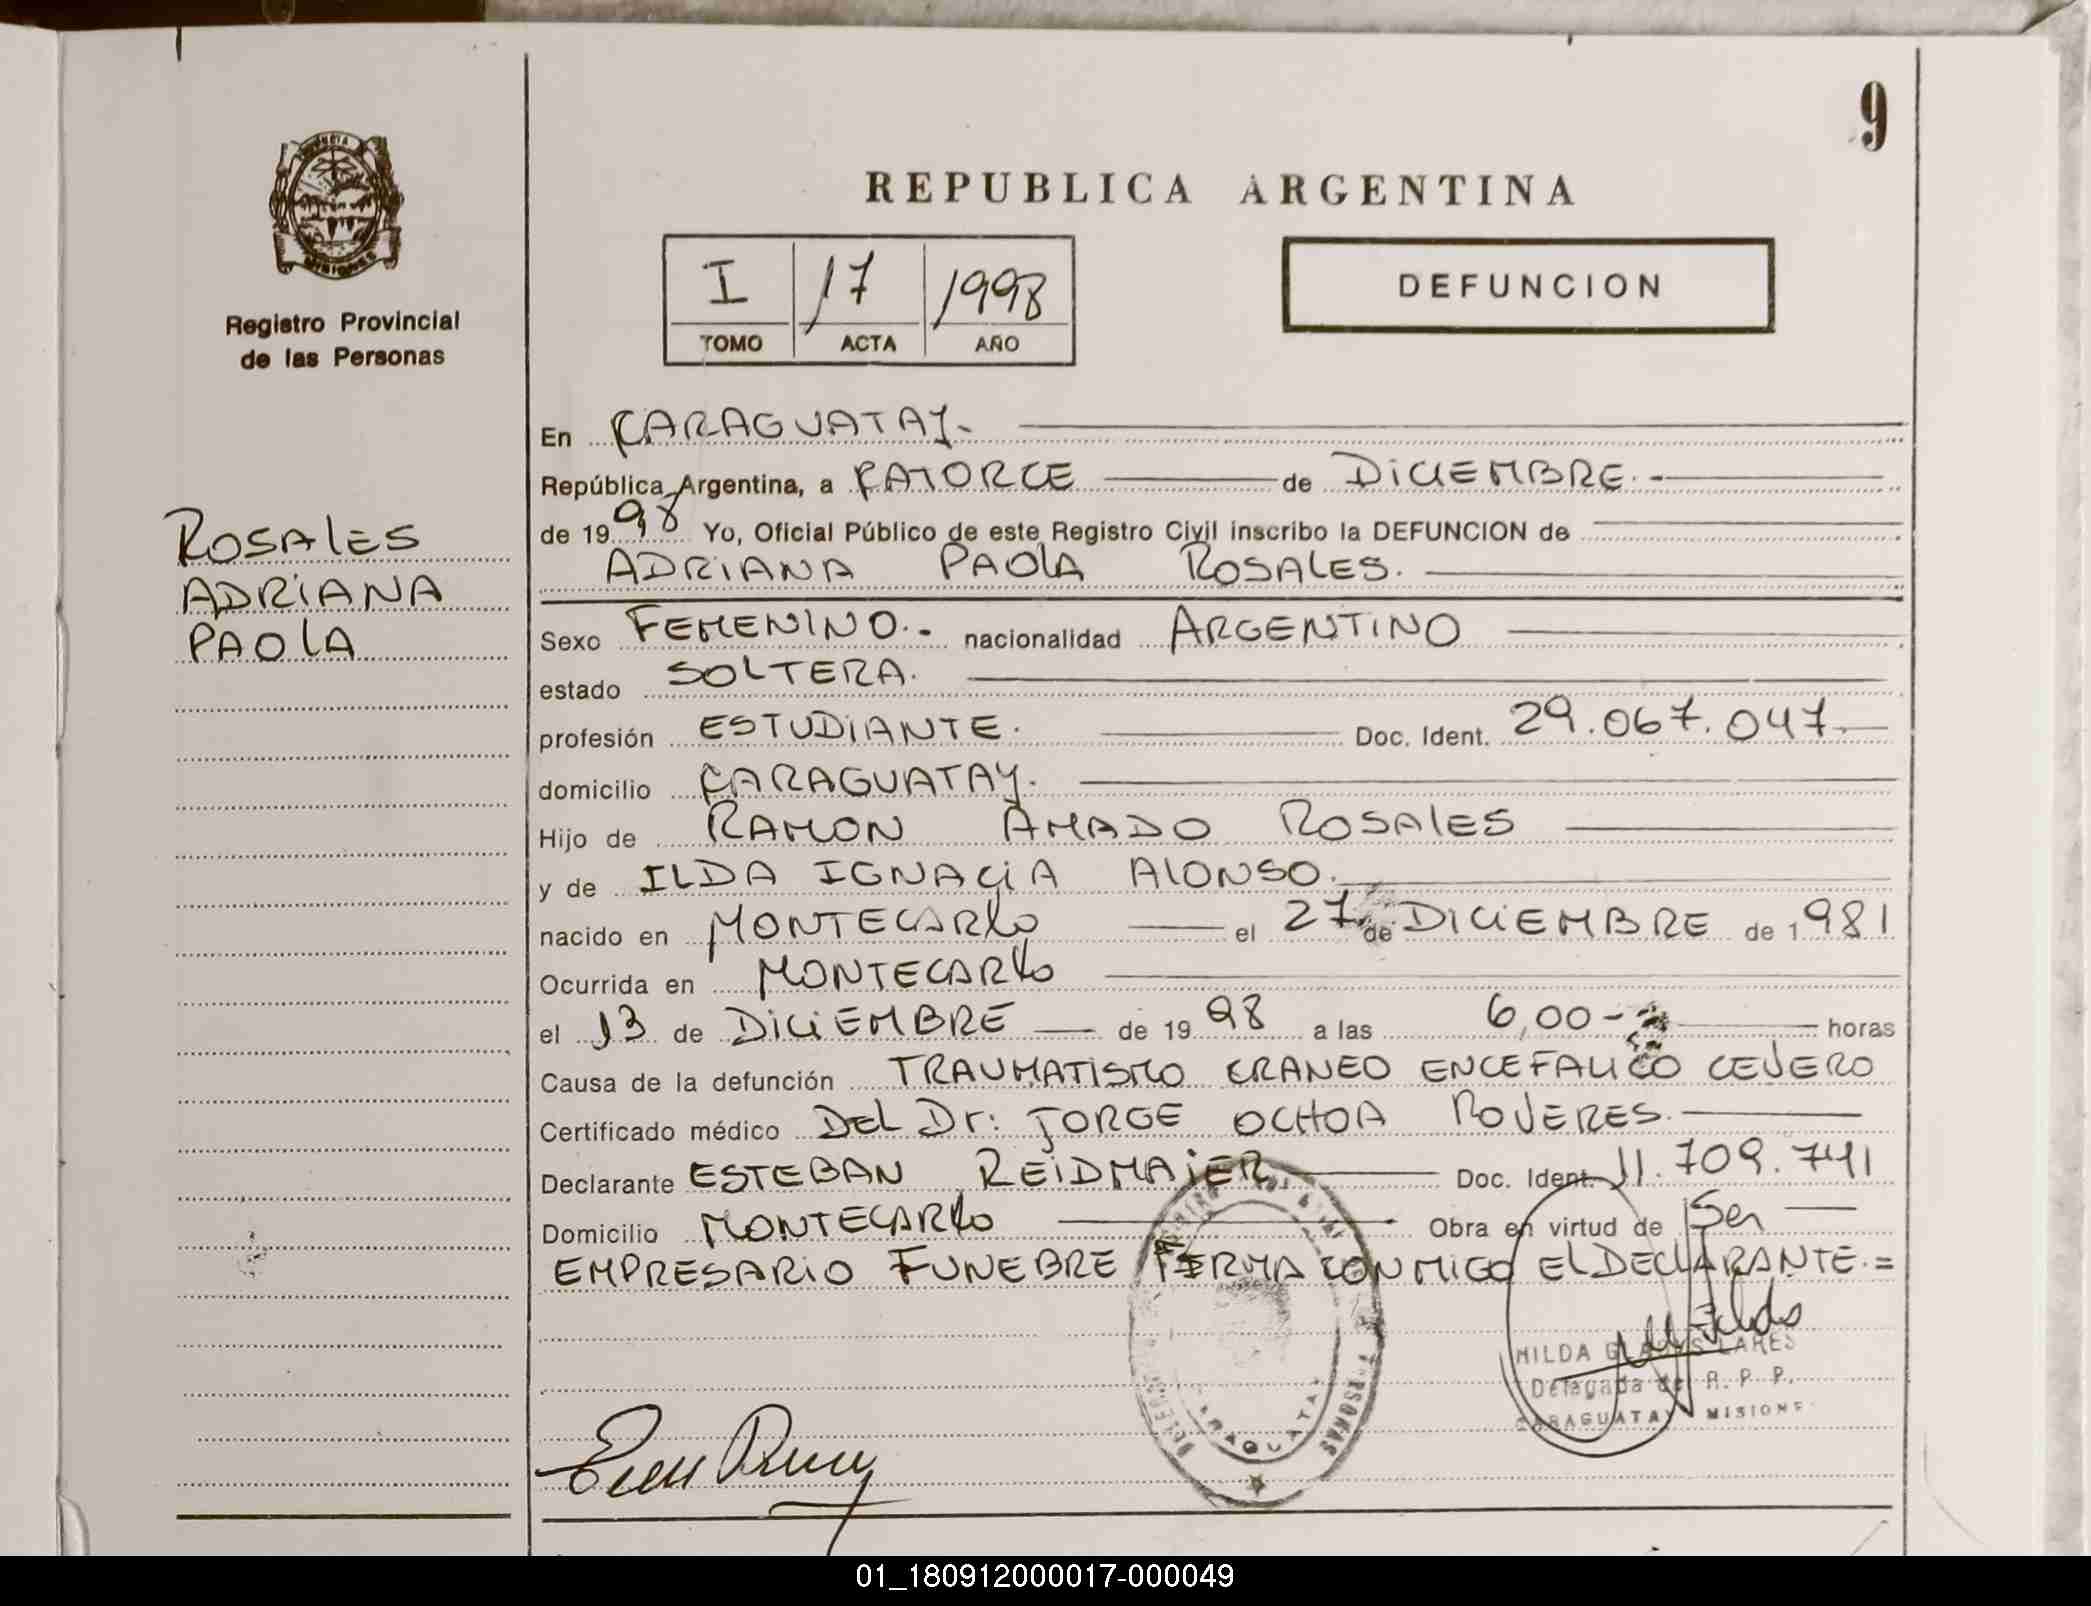 9
PROVINCIA
MISIONES
Registro Provincial
de las Personas
ROSALES
ADRIANA
PAOLA
REPUBLICA ARGENTINA
I 17 1998
TOMO ACTA AÑO
DEFUNCION
En CARAGUATAY.
República Argentina, a CATORCE de DICIEMBRE.-
de 1998 Yo, Oficial Público de este Registro Civil inscribo la DEFUNCION de
ADRIANA PAOLA ROSALES.
Sexo FEMENINO.- nacionalidad ARGENTINO
estado SOLTERA.
profesión ESTUDIANTE. Doc. Ident. 29.067.047.
domicilio CARAGUATAY.
Hijo de RAMON AMADO ROSALES
y de ILDA IGNACIA ALONSO.
nacido en MONTECARLO el 27 de DICIEMBRE de 1981
Ocurrida en MONTECARLO
el 13 de DICIEMBRE de 1998 a las 6,00- horas
Causa de la defunción TRAUMATISMO CRANEO ENCEFALICO CEVERO
Certificado médico DEL Dr: JORGE OCHOA ROVERES.
Declarante ESTEBAN REIDMAIER Doc. Ident. 11.709.741
Domicilio MONTECARLO Obra en virtud de Ser
EMPRESARIO FUNEBRE FIRMA CONMIGO EL DECLARANTE.=
HILDA GLADYS LARES
Delegada de R. P. P.
CARAGUATAY MISIONES
01_180912000017-000049